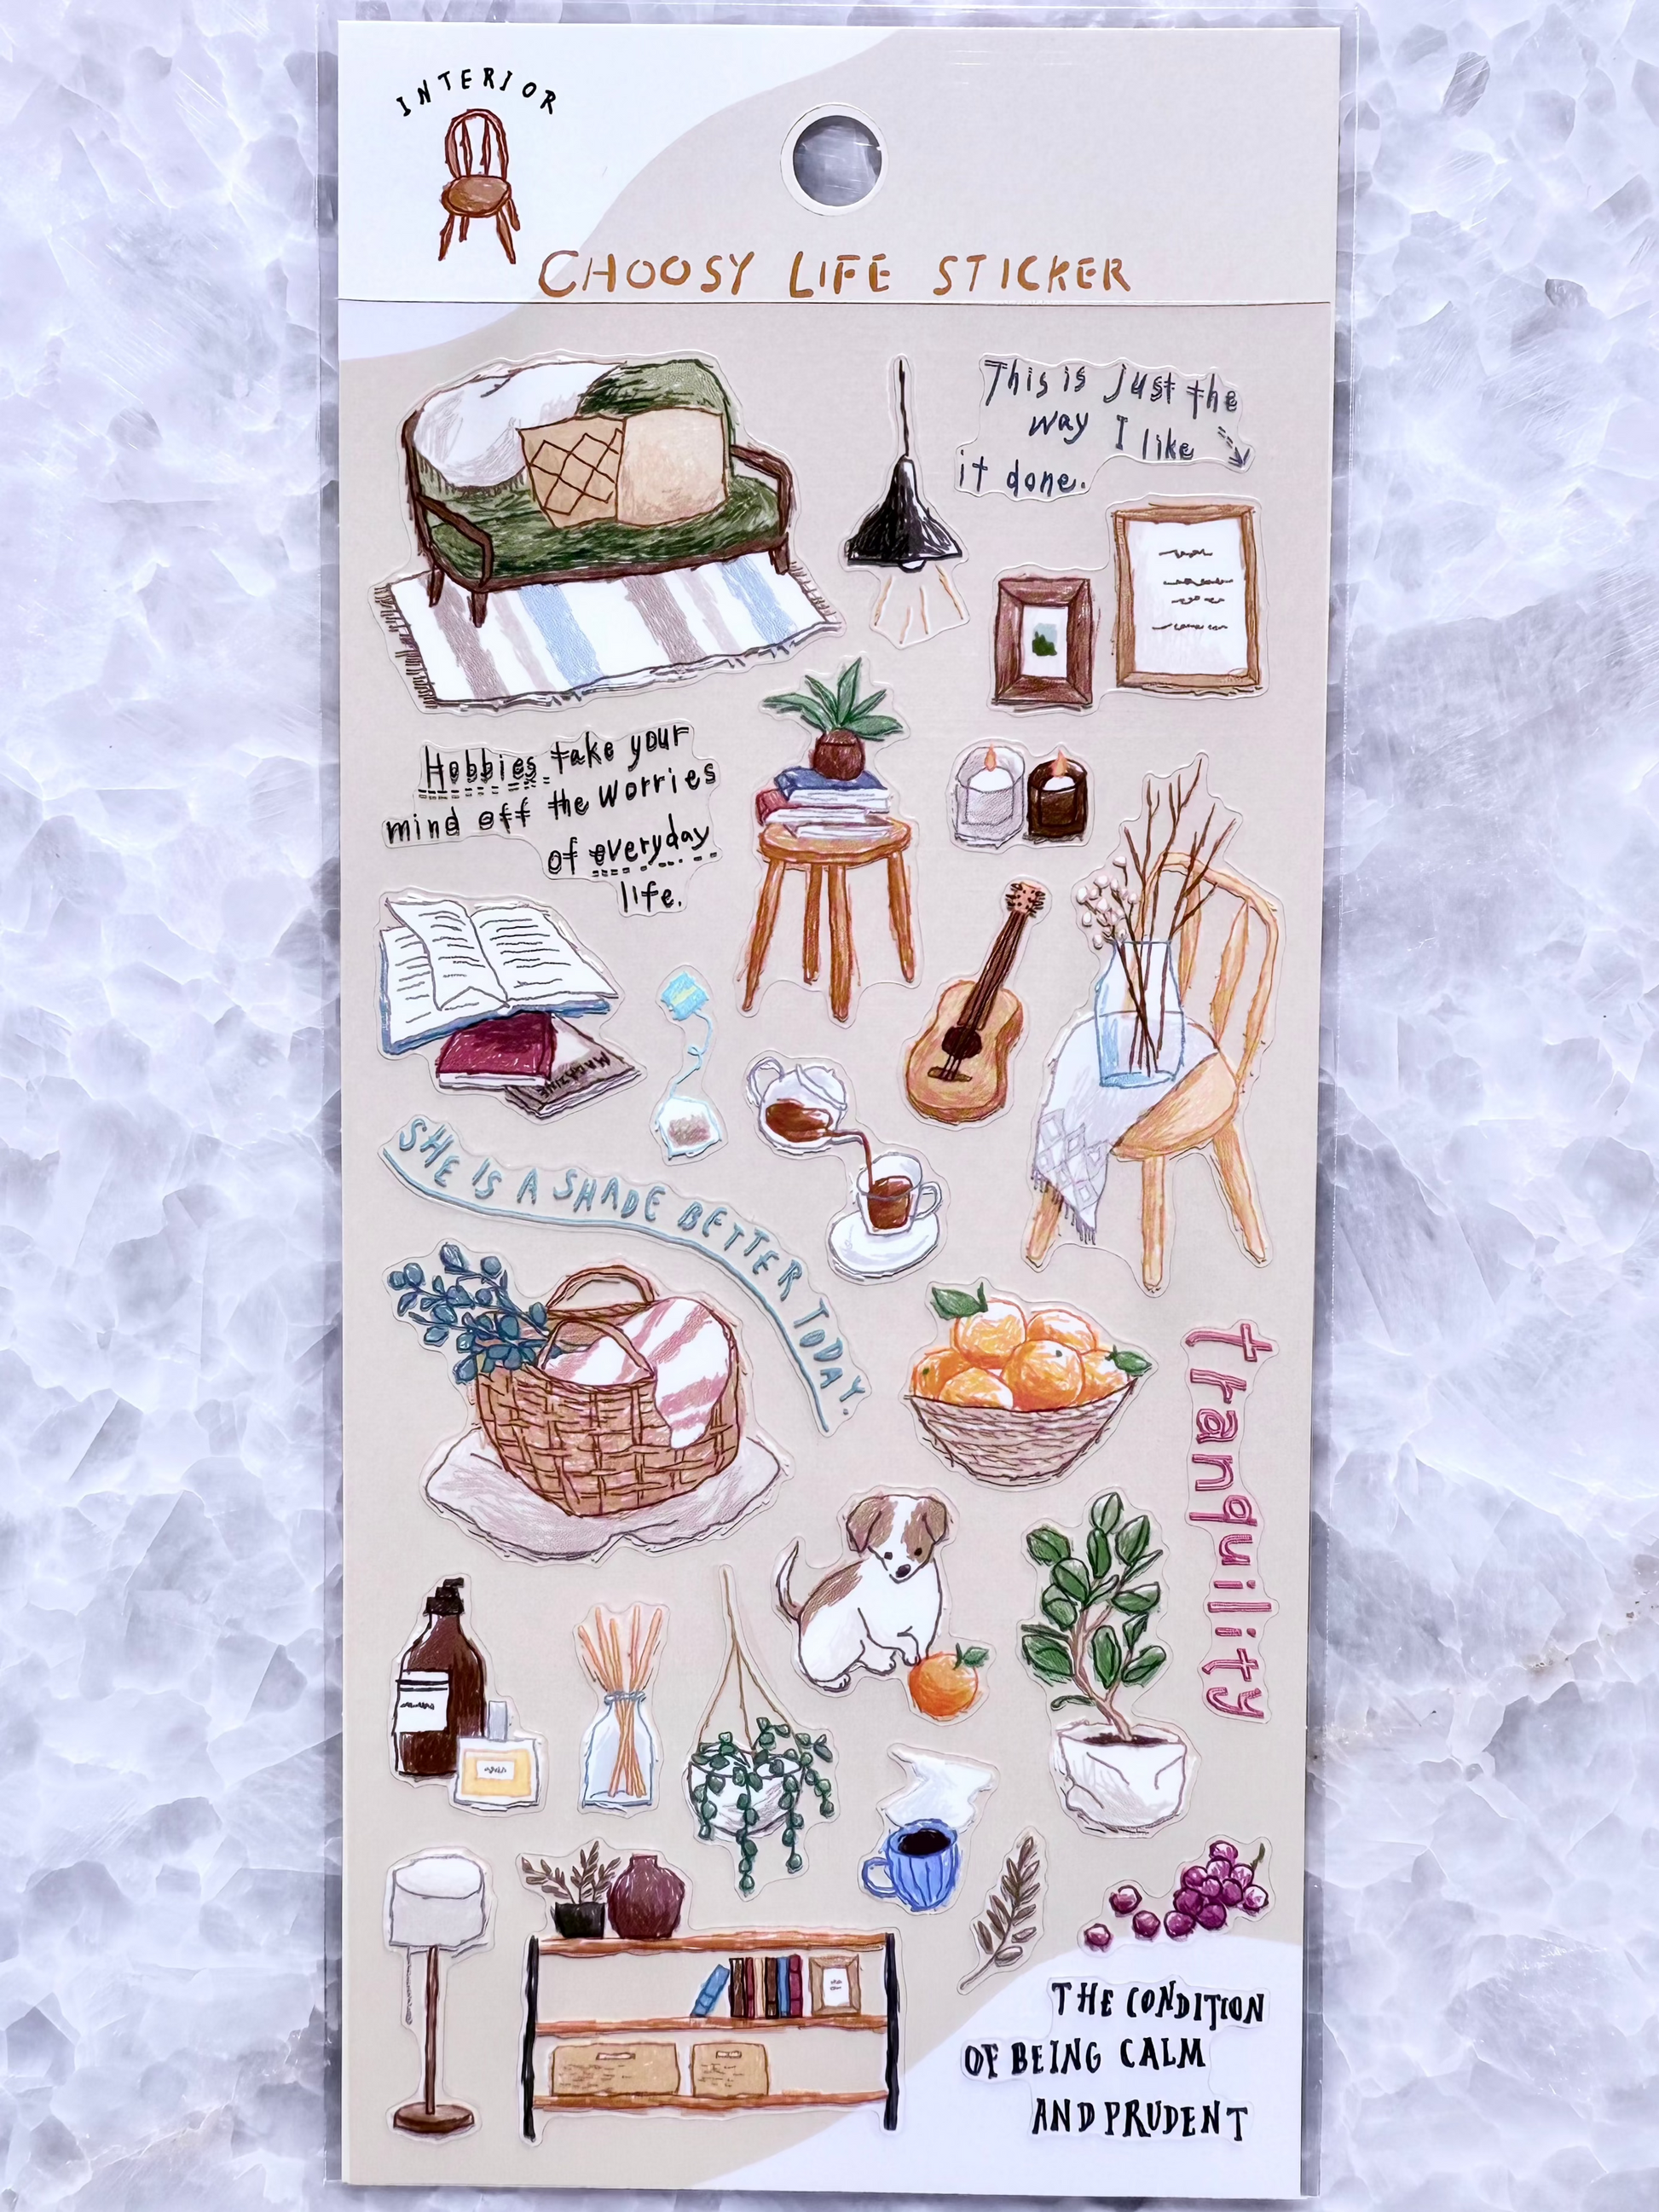 INTERIOR
CHOOSY LIFE STICKER
This is just the
way I like
it done.
Hobbies take your
mind off the worries
of everyday
life.
MAGAZINE
SHE IS A SHADE BETTER TODAY.
tranquility
THE CONDITION
OF BEING CALM
AND PRUDENT